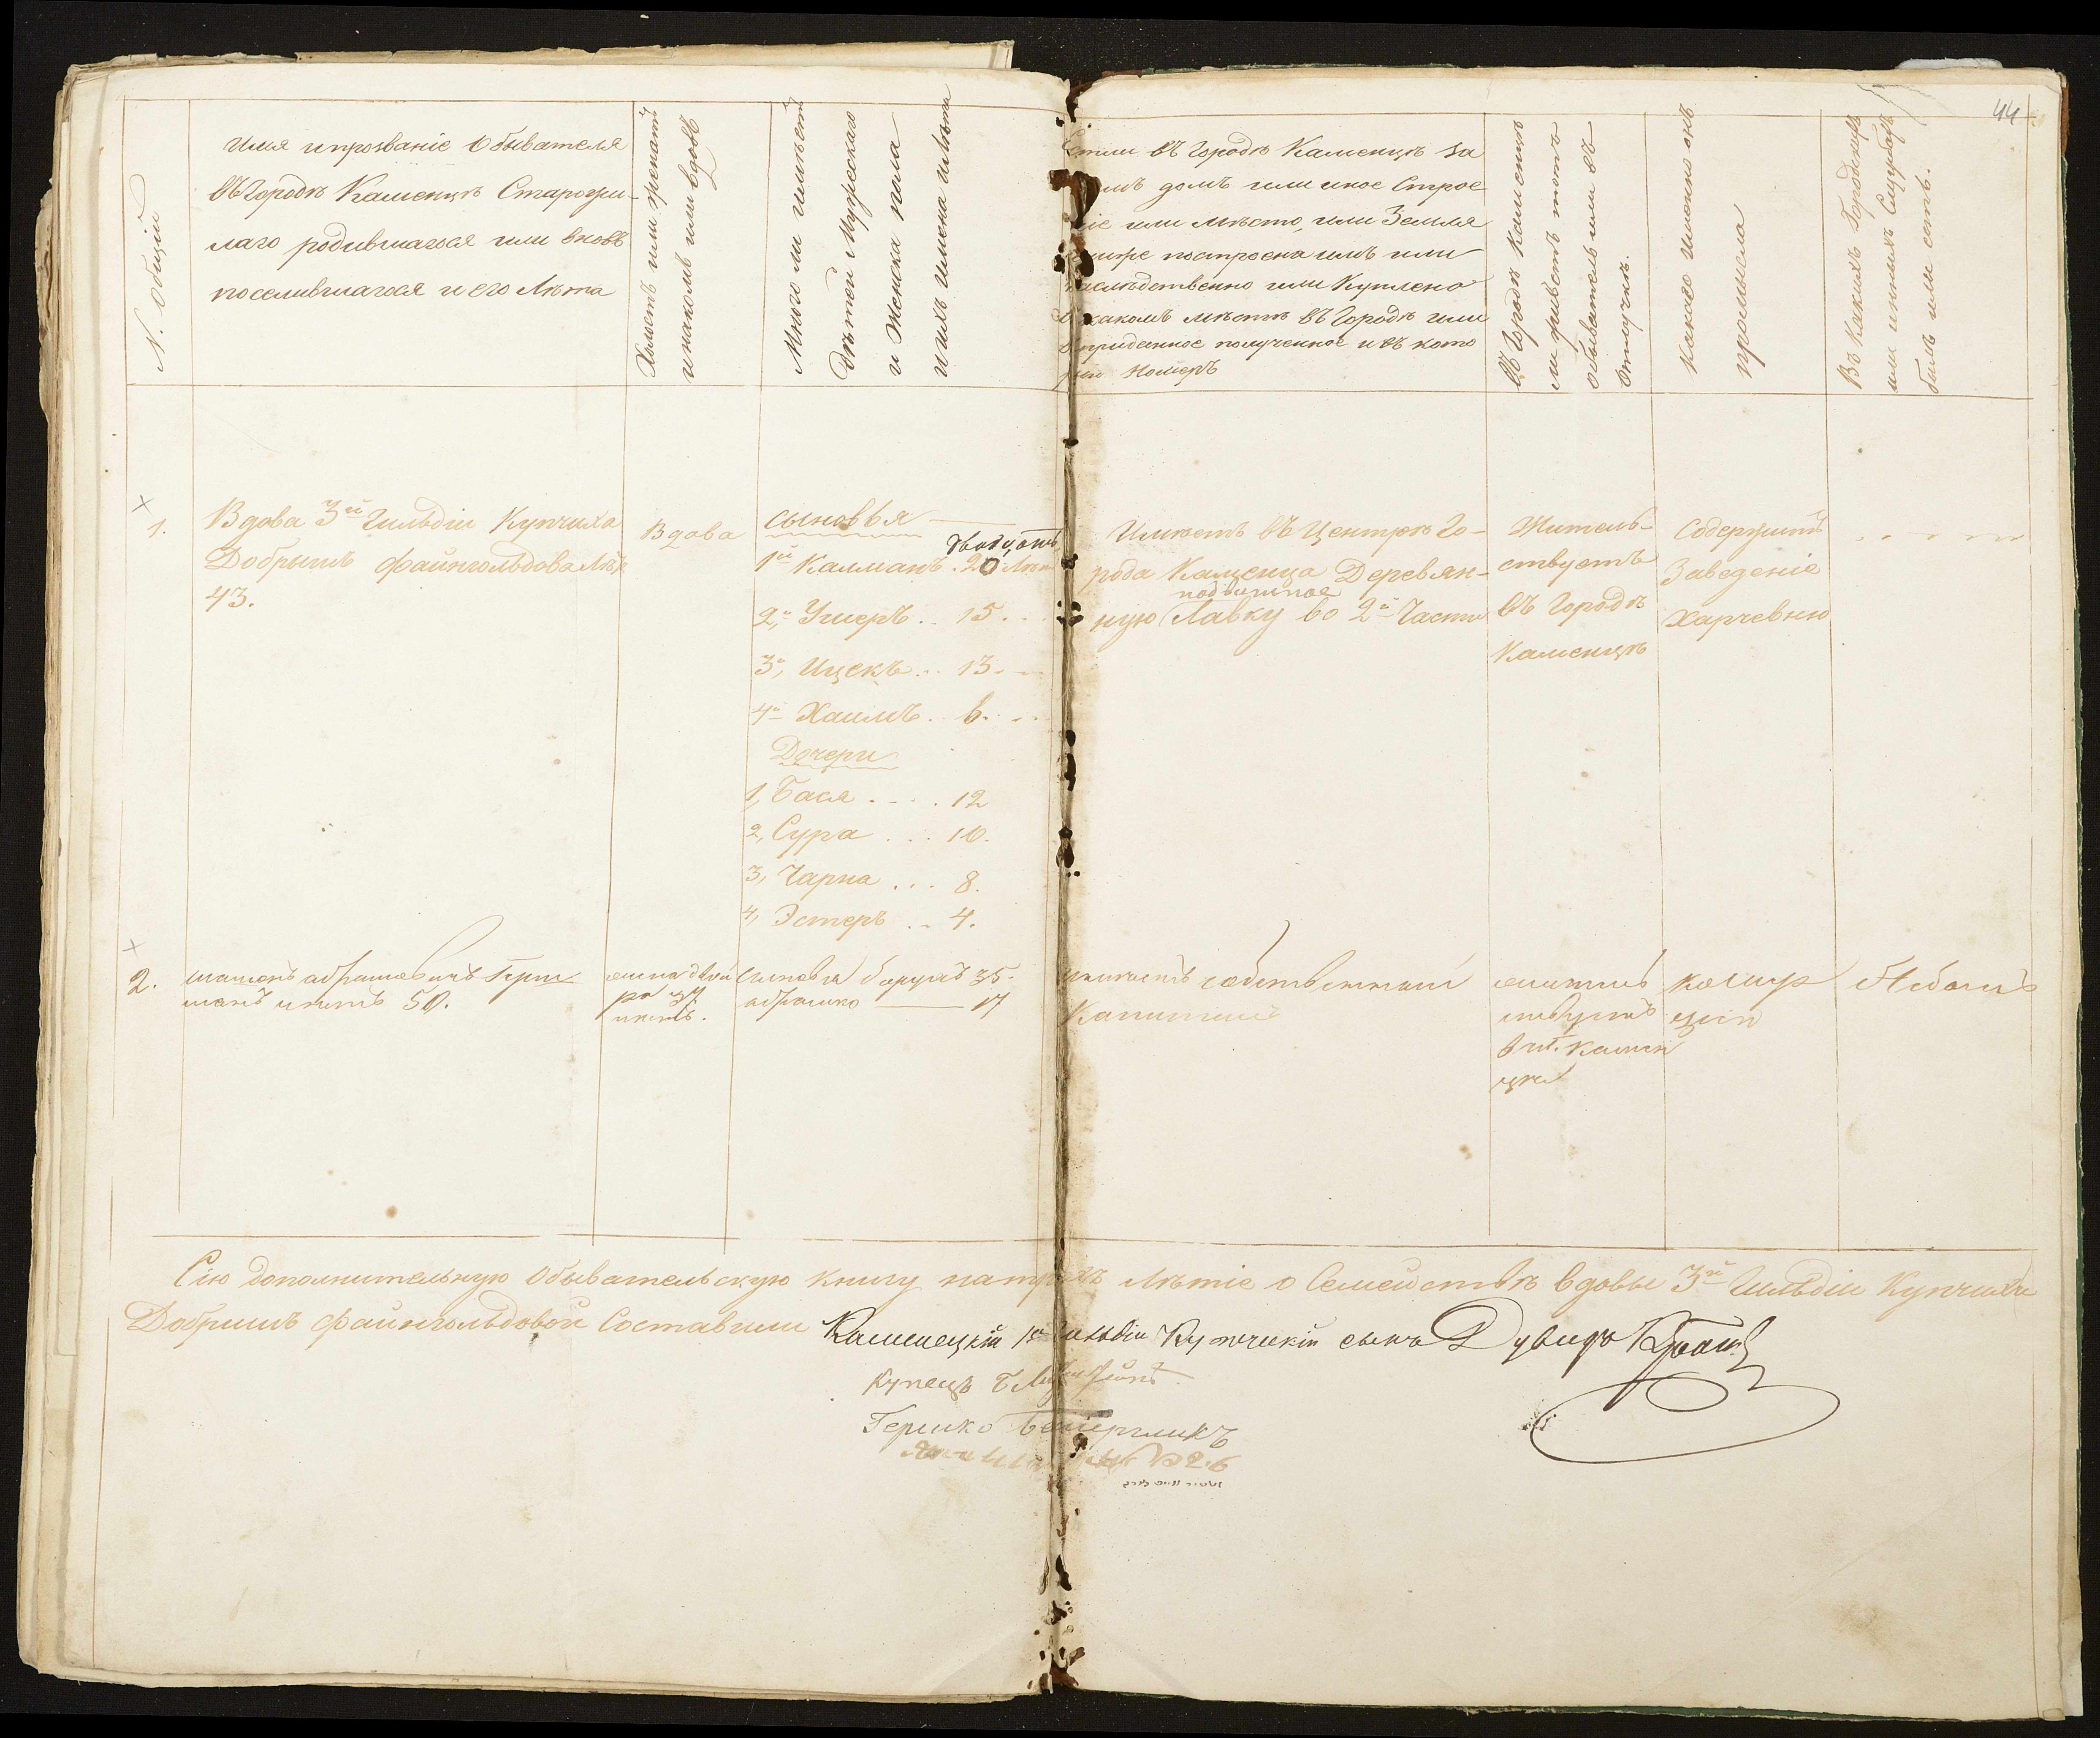 44
N. Общій
Имя и прозваніе Обывателя
въ Городѣ Каменцѣ Старожи-
лаго родившагося или вновѣ
поселившагося и его Лѣта
Холостъ или женатъ
и накомъ или вдовъ
Много ли имѣетъ
дѣтей Мужескаго
и Женска пола
и ихъ имена и лѣта
въ Городѣ Каменцѣ за
домъ или иное Строе
или мѣсто, или Земля
построена имъ или
наслѣдственно или Куплено
какомъ мѣстѣ въ Городѣ или
приданное полученное и въ кото
Номеръ
Въ Городѣ Каменцѣ
ли живетъ тотъ
обыватель или въ
отлучкѣ.
Какого именно онъ
промысла
Въ Какихъ Городскихъ
или инныхъ Службахъ
былъ или есть.
1.
Вдова 3й Гильдіи Купчиха
Добрышъ Файнгольдова Лѣт
43.
Вдова
сыновья
двадцать
1й Калманъ . 20 Лѣтъ
2й Ушеръ .. 15 . .
3й Ицекъ .. 13. ..
4й Хаимъ . 6. ..
Дочери
1, Бася . . . . 12
2, Сура . . . 10.
3, Чарна . . . 8.
4, Эстеръ . . 4.
Имѣетъ въ Центрѣ Го-
рода Каменца Деревян-
подвижное
ную Лавку во 2й Части
Житель-
ствуетъ
въ Городѣ
Каменцѣ
Содержитъ
Заведеніе
Харчевню
2.
абрамовичъ
50.
Сыновья борухъ 35.
абрамко 17
имѣетъ собственный
Капиталъ
Сію дополнительную Обывательскую книгу на трехъ Лѣтіе о Семействѣ вдовы 3й Гильдіи Купчихи
Добришъ Файнгольдовой Составили Каменецкій 1й гильдіи Купеческій сынъ Дувидъ
Купецъ
Гершко